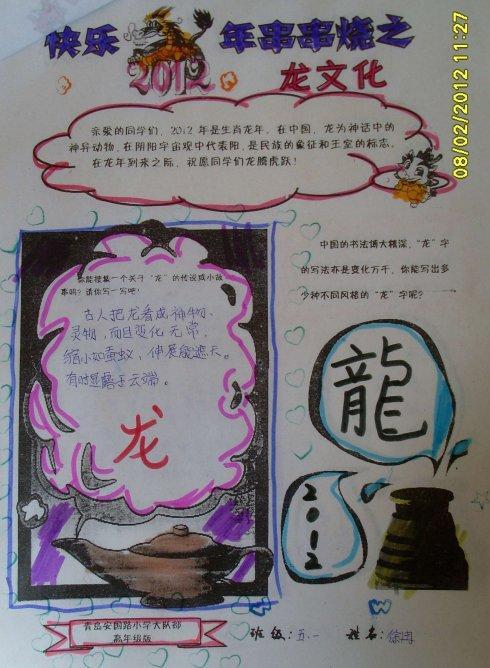 快乐 年串串烧之
2012 龙文化
08/02/2012 11:27
亲爱的同学们，2012 年是生肖龙年。在中国，龙为神话中的
神异动物，在阴阳宇宙观中代表阳，是民族的象征和王室的标志。
在龙年到来之际，祝愿同学们龙腾虎跃！
你能搜集一个关于“龙”的传说或小故
事吗？请你写一写吧！
古人把龙看成神物、
灵物，而且变化无常，
缩小如蚕蚁，伸展能遮天。
有时显露于云端。
龙
中国的书法博大精深，“龙”字
的写法亦是变化万千，你能写出多
少种不同风格的“龙”字呢？
龍
2012
青岛安国路小学大队部
高年级版
班级：五.一 姓名：徐